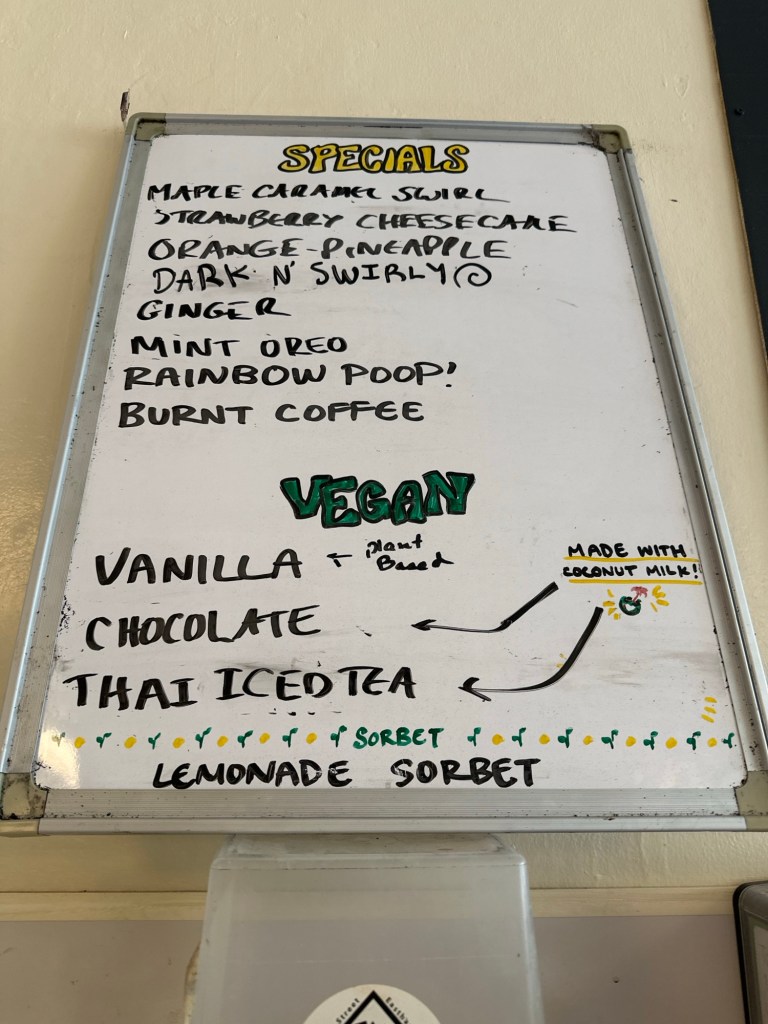 SPECIALS
MAPLE CARAMEL SWIRL
STRAWBERRY CHEESECAKE
ORANGE-PINEAPPLE
DARK N' SWIRLY
GINGER
MINT OREO
RAINBOW POOP!
BURNT COFFEE
VEGAN
VANILLA ← Plant
Based
MADE WITH
COCONUT MILK!
CHOCOLATE
THAI ICED TEA
SORBET
LEMONADE SORBET
Street